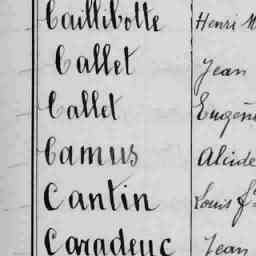 Caillibotte Henri M
Callet Jean
Callet Eugène
Camus Alcide
Cantin Louis
Caradeuc Jean